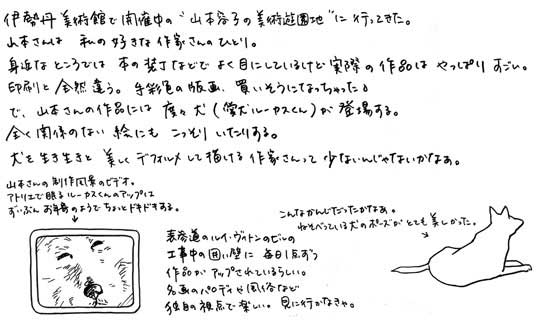 伊勢丹美術館で開催中の"山本容子の美術遊園地"に行ってきた。
山本さんは 私の好きな作家さんのひとり。
身近なところでは 本の装丁などで よく目にしているけど 実際の作品は やっぱり すごい。
印刷と全然違う。手彩色の版画、買いそうになっちゃった。
で、山本さんの作品には 度々犬(愛犬ルーカスくん)が 登場する。
全く関係のない絵にも こっそり いたりする。
犬を生き生きと 美しくデフォルメして描ける 作家さんって 少ないんじゃないかなぁ。
山本さんの制作風景のビデオ。
アトリエで眠るルーカスくんのアップは
ずいぶんお年寄のようでちょっとドキドキする。
こんなかんじだったかなぁ。
ねそべっている犬のポーズが とても美しかった。
表参道のルイ・ヴィトンのビルの
工事中の囲い壁に 毎日1点ずつ
作品が アップされているらしい。
名画のパロディや風俗など
独自の視点で楽しい。見に行かなきゃ。